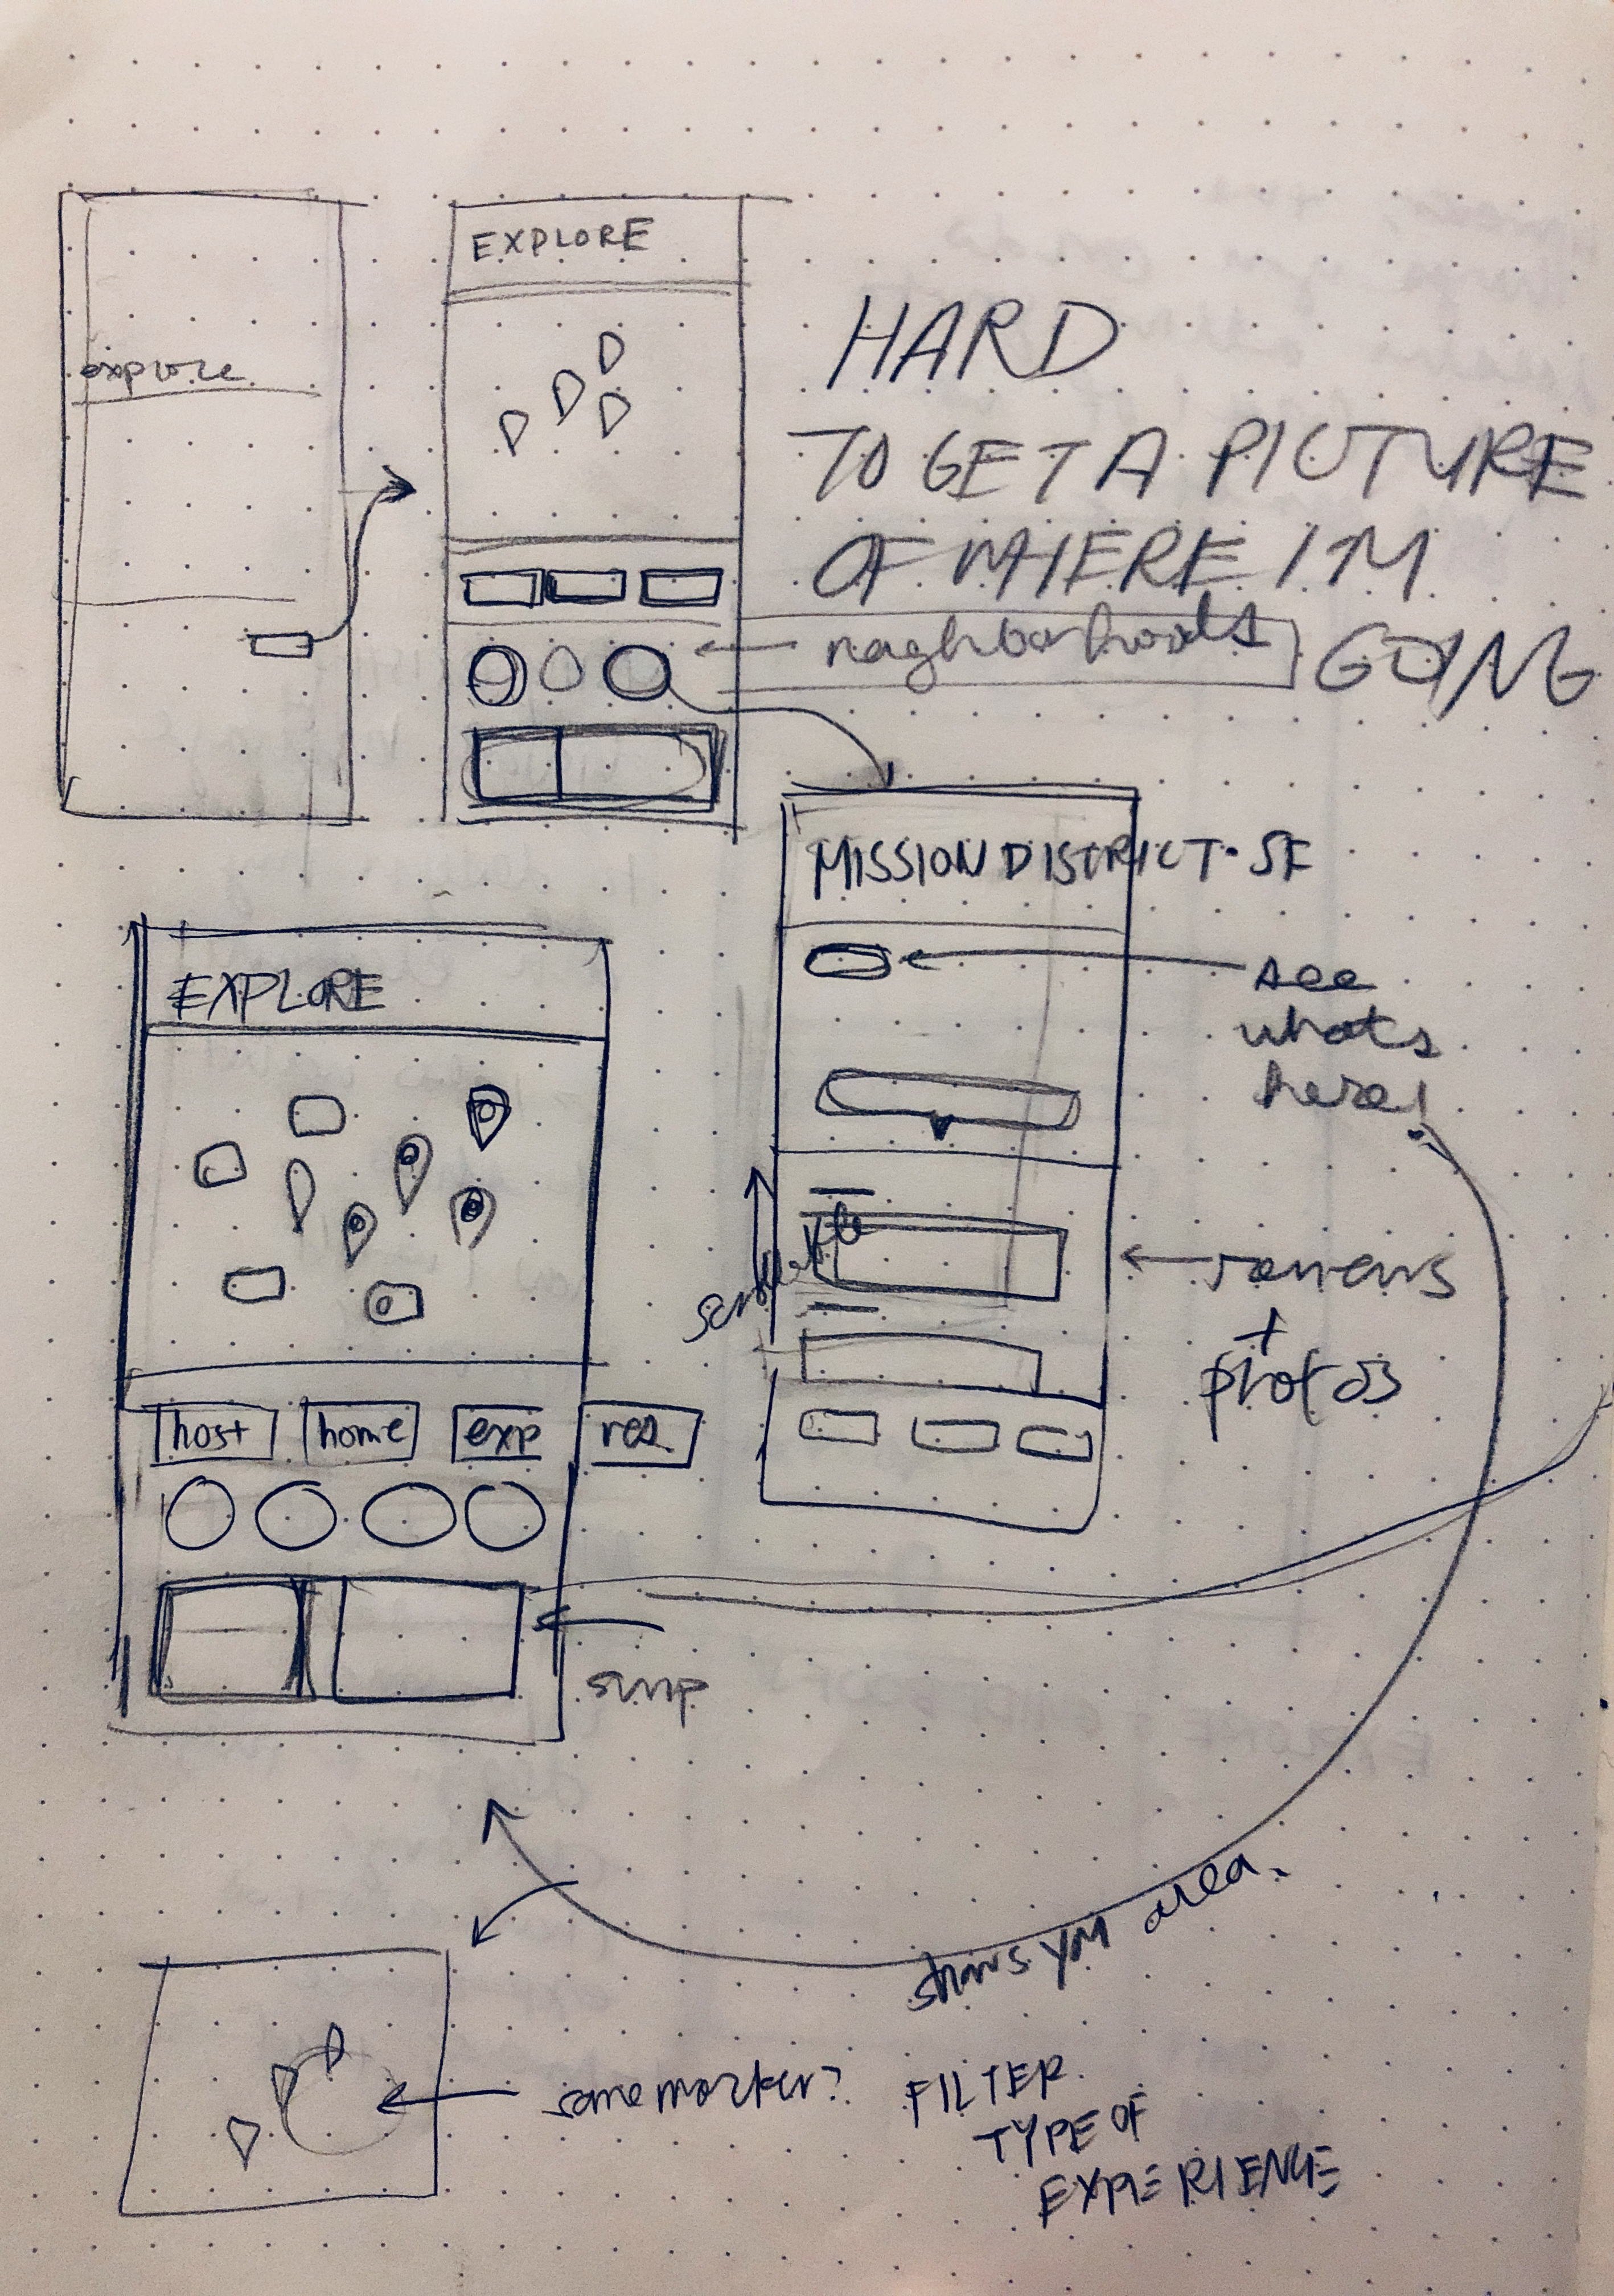 explore
EXPLORE
HARD
TO GET A PICTURE
OF WHERE I'M
GOING
neighborhoods
MISSION DISTRICT • SF
see
whats
here!
scrollable
reviews
+
photos
EXPLORE
host
home
exp
res
shows you area.
same marker?
FILTER
TYPE OF
EXPERIENCE